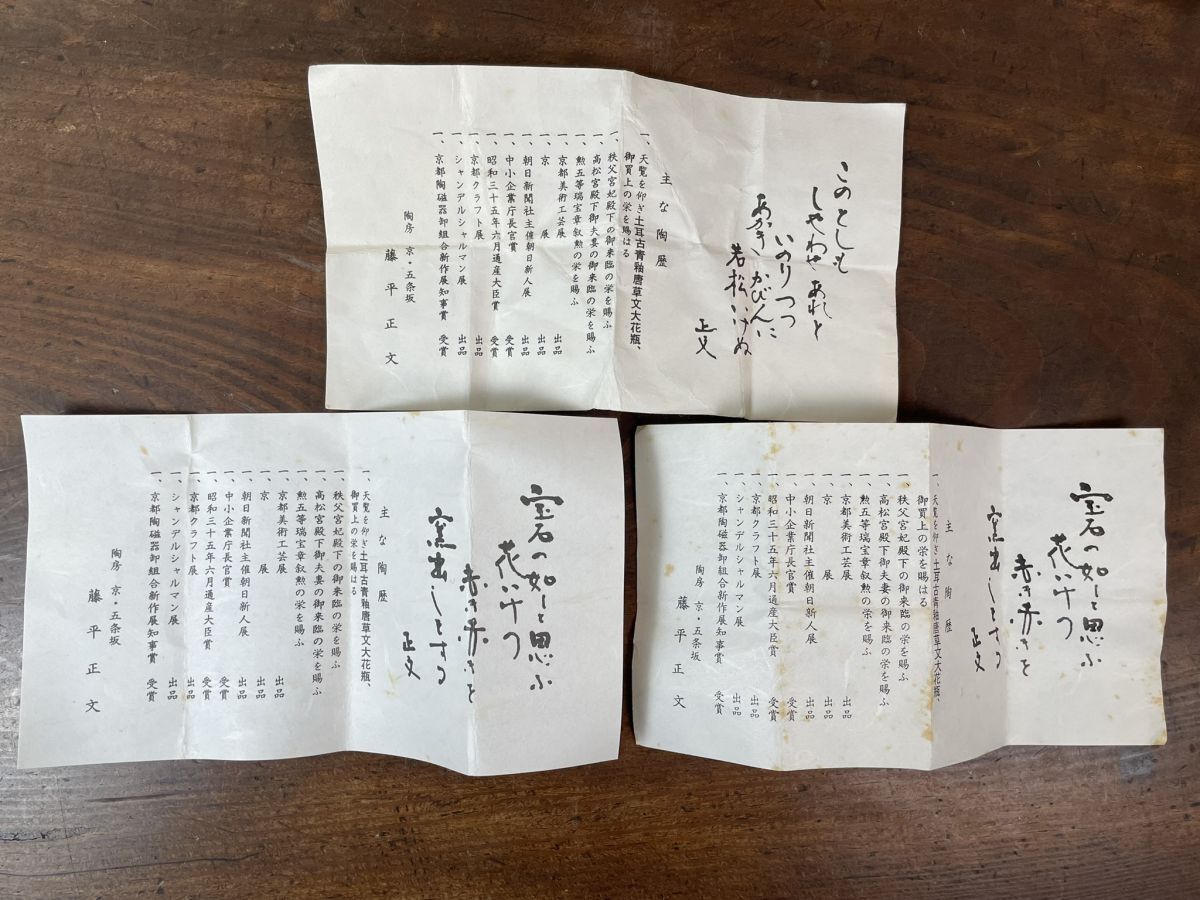 このとしも
しやわせあれと
いのりつつ
あかきかびんに
若松いけぬ
正文
主な陶歴
一、天覧を仰ぎ土耳古青釉唐草文大花瓶、
御買上の栄を賜はる
一、秩父宮妃殿下の御来臨の栄を賜ふ
一、高松宮殿下御夫妻の御来臨の栄を賜ふ
一、勲五等瑞宝章叙勲の栄を賜ふ
一、京都美術工芸展 出品
一、京展 出品
一、朝日新聞社主催朝日新人展 出品
一、中小企業庁長官賞 受賞
一、昭和三十五年六月通産大臣賞 受賞
一、京都クラフト展 出品
一、シャンデルシャルマン展 出品
一、京都陶磁器卸組合新作展知事賞 受賞
陶房 京・五条坂
藤平正文
宝石の如しと思ふ
花いけつ
赤き赤きを
窯出しとする
正文
主な陶歴
一、天覧を仰ぎ土耳古青釉唐草文大花瓶、
御買上の栄を賜はる
一、秩父宮妃殿下の御来臨の栄を賜ふ
一、高松宮殿下御夫妻の御来臨の栄を賜ふ
一、勲五等瑞宝章叙勲の栄を賜ふ
一、京都美術工芸展 出品
一、京展 出品
一、朝日新聞社主催朝日新人展 出品
一、中小企業庁長官賞 受賞
一、昭和三十五年六月通産大臣賞 受賞
一、京都クラフト展 出品
一、シャンデルシャルマン展 出品
一、京都陶磁器卸組合新作展知事賞 受賞
陶房 京・五条坂
藤平正文
宝石の如しと思ふ
花いけつ
赤き赤きを
窯出しとする
正文
主な陶歴
一、天覧を仰ぎ土耳古青釉唐草文大花瓶、
御買上の栄を賜はる
一、秩父宮妃殿下の御来臨の栄を賜ふ
一、高松宮殿下御夫妻の御来臨の栄を賜ふ
一、勲五等瑞宝章叙勲の栄を賜ふ
一、京都美術工芸展 出品
一、京展 出品
一、朝日新聞社主催朝日新人展 出品
一、中小企業庁長官賞 受賞
一、昭和三十五年六月通産大臣賞 受賞
一、京都クラフト展 出品
一、シャンデルシャルマン展 出品
一、京都陶磁器卸組合新作展知事賞 受賞
陶房 京・五条坂
藤平正文